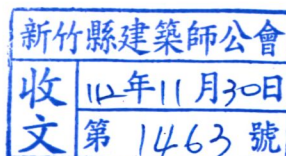 新竹縣建築師公會
收文
112年11月30日
第 1463 號